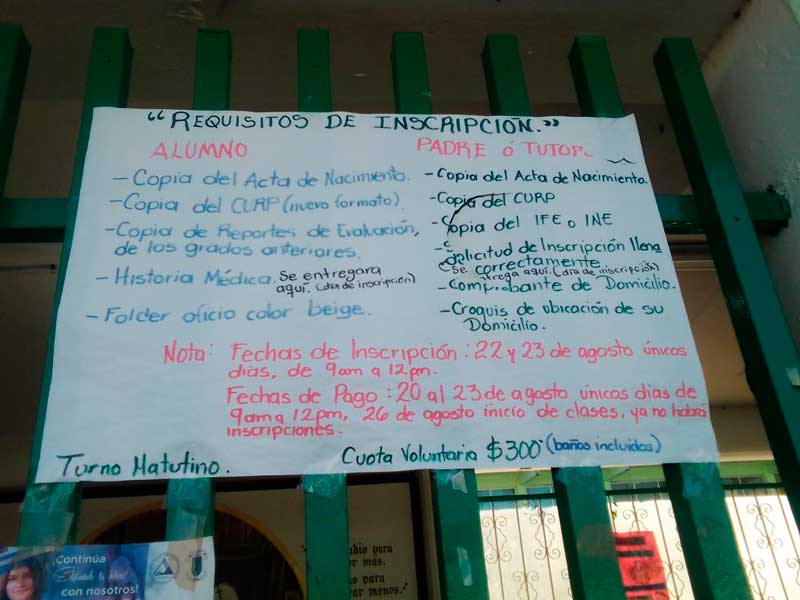 "REQUISITOS DE INSCRIPCIÓN."
ALUMNO
- Copia del Acta de Nacimiento.
- Copia del CURP (nuevo formato).
- Copia de Reportes de Evaluación,
de los grados anteriores.
- Historia Médica. Se entregara
aquí. (día de inscripción)
- Folder oficio color beige.
PADRE ó TUTOR.
- Copia del Acta de Nacimiento.
- Copia del CURP
- Copia del IFE o INE
- Solicitud de Inscripción llena
correctamente
Se entrega aquí. (día de inscripción)
- Comprobante de Domicilio.
- Croquis de ubicación de su
Domicilio.
Nota: Fechas de Inscripción: 22 y 23 de agosto únicos
días, de 9am a 12pm.
Fechas de Pago: 20 al 23 de agosto únicos días de
9am a 12pm, 26 de agosto inicio de clases, ya no habrá
inscripciones.
Turno Matutino.
Cuota Voluntaria $300 (baños incluidos)
¡Continúa
con nosotros!
para
más.
para
menos."